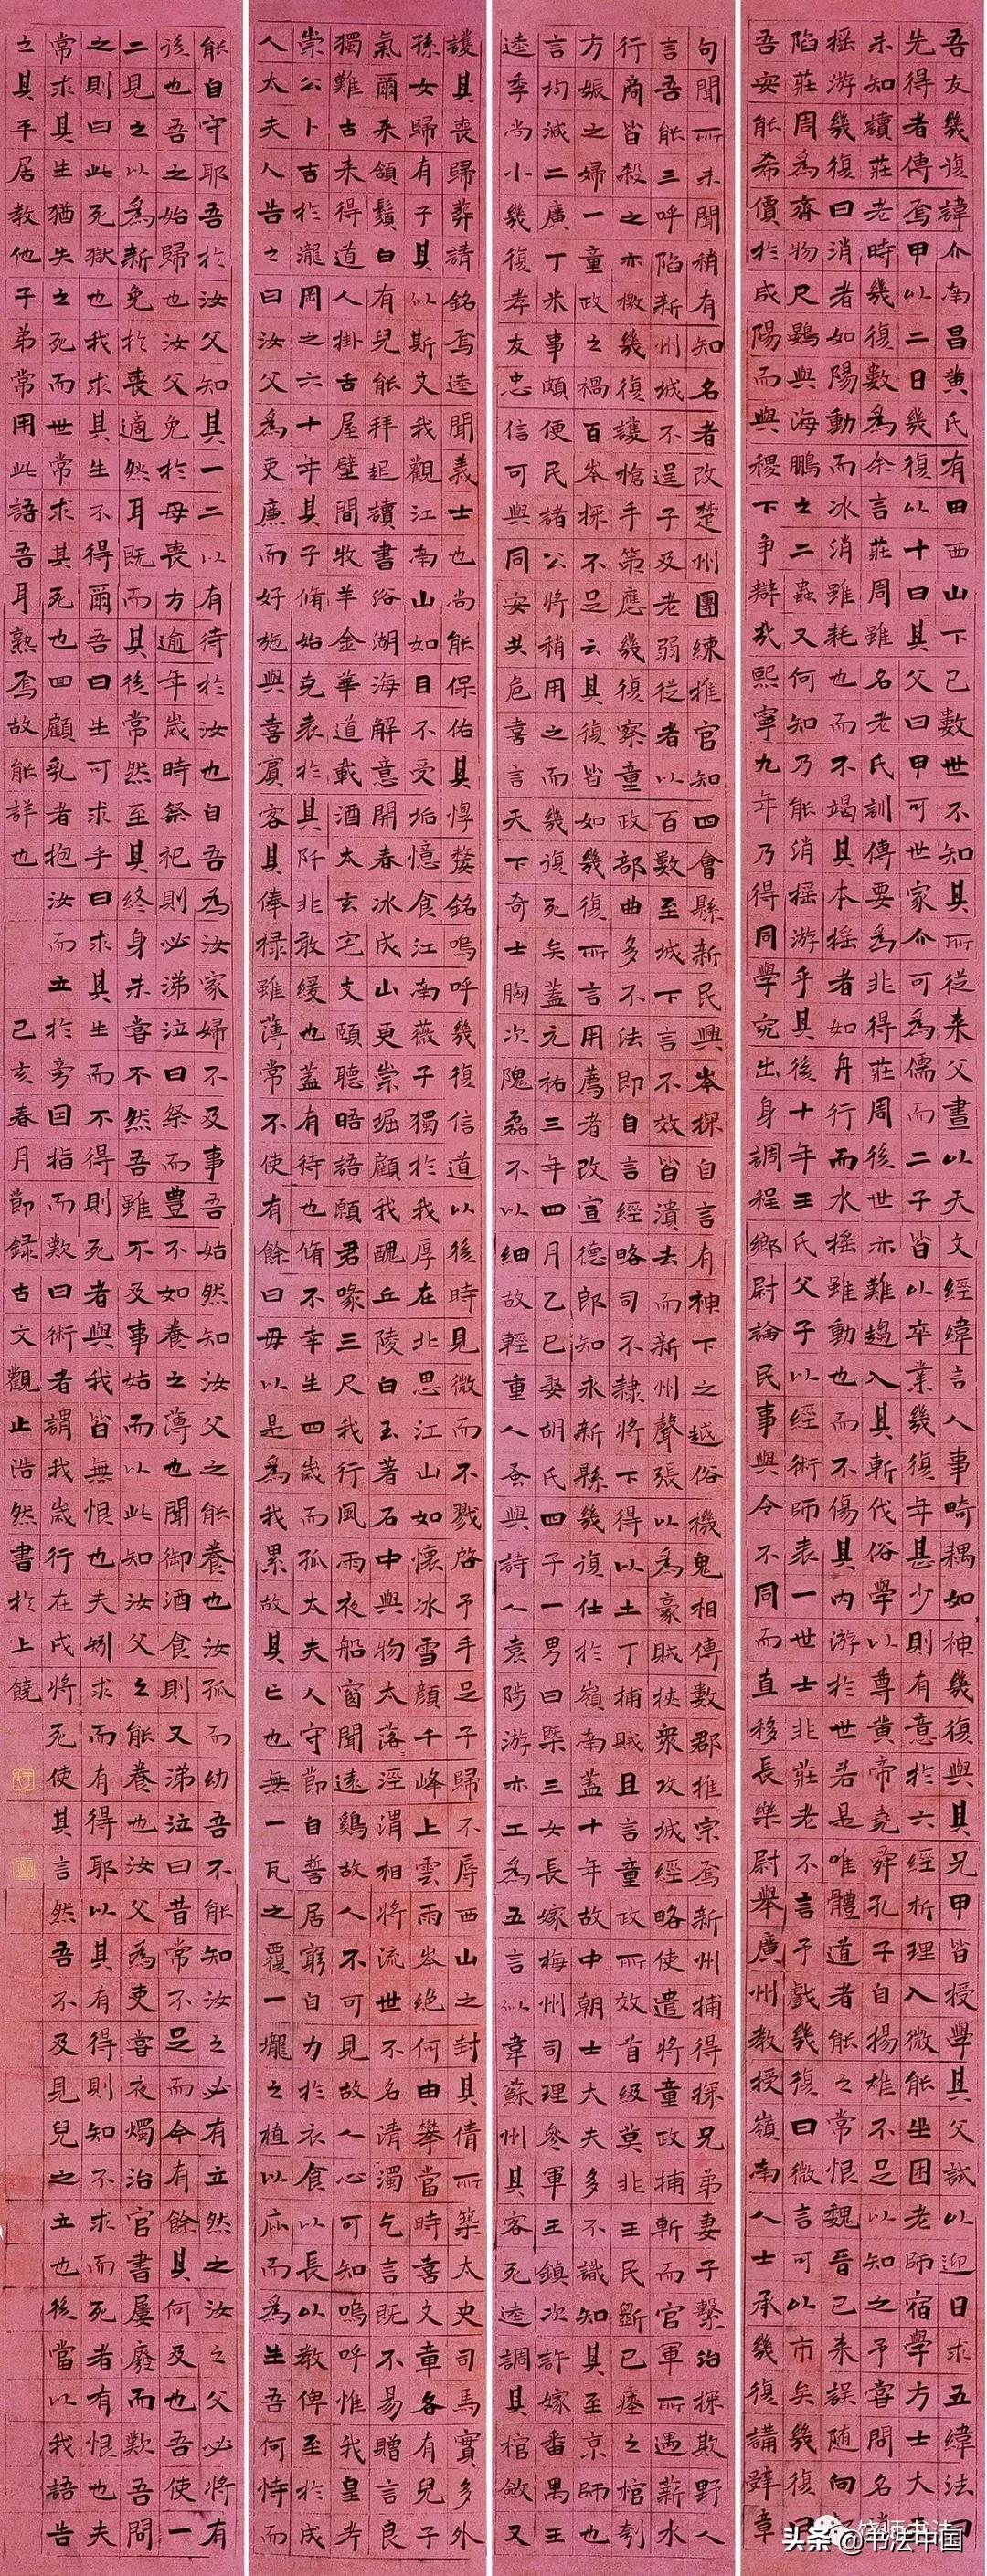 吾友幾復諱介南昌黄氏有田西山下已數世不知其所従来父晝以天文經緯言人事畸耦如神幾復與其兄甲皆授學其父試以迎日求五緯法曰
先得者傳焉甲以二日幾復以十日其父曰甲可世家介可為儒而二子皆以卒業幾復年甚少則有意於六經析理入微能坐困老師宿學方士大
未知讀莊老時幾復數為余言莊周雖名老氏訓傳要為非得莊周後世亦難趨入其斬伐俗學以尊黄帝堯舜孔子自揚雄不足以知之予嘗問名消
摇游幾復曰消者如陽動而冰消雖耗也而不竭其本摇者如舟行而水摇雖動也而不傷其内游於世若是唯體道者能之常恨魏晉已来誤随向
陷莊周為齊物尺鷃與海鵬之二蟲又何知乃能消摇游乎其後十年王氏父子以經術師表一世士非莊老不言予戲幾復曰微言可以市矣幾復曰
吾安能希價於咸陽而與稷下争辯哉熙寧九年乃得同學究出身調程鄉尉論民事與令不同而直移長樂尉舉廣州教授嶺南人士承幾復講辭章
句聞所未聞稍有知名者改楚州團練推官知四會縣新民興岑探自言有神下之越俗機鬼相傳數郡推宗焉新州捕得探兄弟妻子繫治探欺野人
言吾能三呼陷新州城不逞子及老弱從者以百數至城下言不效皆潰去而新州聲張以為豪賊挾衆攻城經略使遣將童政捕斬而官軍所遇薪水
行商皆殺之亦檄幾復護槍手第應幾復察童政部曲多不法即自言經略司不隷將下得以土丁捕賊且言童政所效首級莫非王民斮已瘞之棺刳
方娠之婦一童政之禍百岑探不足云其復皆如幾復所言用薦者改宣德郎知永新縣幾復仕於嶺南蓋十年故中朝士大夫多不識知其至京師也
言均減二廣丁米事頗便民諸公將稍用之而幾復死矣蓋元祐三年四月乙巳娶胡氏四子一男曰㮚三女長嫁梅州司理参軍王鎮次許嫁番禺王
逵季尚小幾復孝友忠信可與同安共危喜言天下奇士胸次隗磊不以細故輕重人蚤與詩人袁陟游亦工為五言似韋蘇州其客死逵調其棺斂又
護其喪歸葬請銘焉逵聞義士也尚能保佑其惸嫠銘嗚呼幾復信道以後時見微而不戮啓予手足子歸不辱西山之封其倩所築太史司馬實多外
孫女歸有子其似斯文我觀江南山如目不受垢憶食江南薇子獨於我厚在北思江山如懷冰雪顔千峰上雲雨岑絶何由攀當時喜文章各有兒子
氣爾来頷鬚白有兒能拜起讀書浴湖海解意開春冰成山更崇堀顧我醜丘陵白玉著石中與物太落涇渭相將流世不名清濁乞言既不易贈言良
獨難古来得道人掛舌屋壁間牧羊金華道載酒太玄宅支頤聽晤語願君喙三尺我行風雨夜船窗聞遠鷄故人不可見故人心可知嗚呼惟我皇考
崇公卜吉於瀧岡之六十年其子脩始克表於其阡非敢緩也蓋有待也脩不幸生四歲而孤太夫人守節自誓居窮自力於衣食以長以教俾至於成
人太夫人告之曰汝父為吏廉而好施與喜賓客其俸禄雖薄常不使有餘曰毋以是為我累故其亡也無一瓦之覆一壠之植以庇而為生吾何恃而
能自守耶吾於汝父知其一二以有待於汝也自吾為汝家婦不及事吾姑然知汝父之能養也汝孤而幼吾不能知汝之必有立然之汝之父必將有
後也吾之始歸也汝父免於母喪方逾年歲時祭祀則必涕泣曰祭而豊不如養之薄也聞御酒食則又涕泣曰昔常不足而今有餘其何及也吾使一
二見之以為新免於喪適然耳既而其後常然至其終身未嘗不然吾雖不及事姑而以此知汝父之能養也汝父為吏嘗夜燭治官書屢廢而歎吾問
之則曰此死獄也我求其生不得爾吾曰生可求乎曰求其生而不得則死者與我皆無恨也夫矧求而有得耶以其有得則知不求而死者有恨也夫
常求其生猶失之死而世常求其死也回顧乳者抱汝而立於旁因指而歎曰術者謂我歲行在戌將死使其言然吾不及見兒之立也後當以我語告
之其平居教他子弟常用此語吾耳熟焉故能詳也 己亥春月節録古文觀止浩然書於上饒
头条 @书法中国